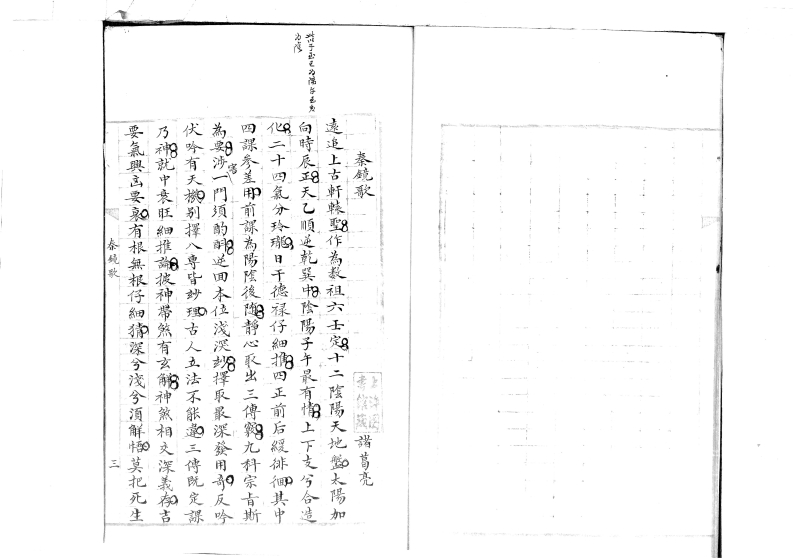 秦鏡歌
諸葛亮
遠追上古軒轅聖作為数祖六壬定十二陰陽天地盤太陽加
向時辰正天乙順逆乾巽中陰陽子午最有情上下支兮合造
化二十四氣分玲瓏日干德禄仔細推四正前后緩徘徊其中
四課參差用前課為陽陰後随靜心取出三傳竅九科宗旨斯
為要涉害一門須酌酬逆回本位淺深妙擇取最深發用奇反吟
伏吟有天機别擇八專皆妙理古人立法不能違三傳既定課
乃神就中衰旺細推論披神帶煞有玄解神煞相交深義存吉
要氣興凶要衰有根無根仔細猜深兮淺兮須解悟莫把死生
秦鏡歌
三